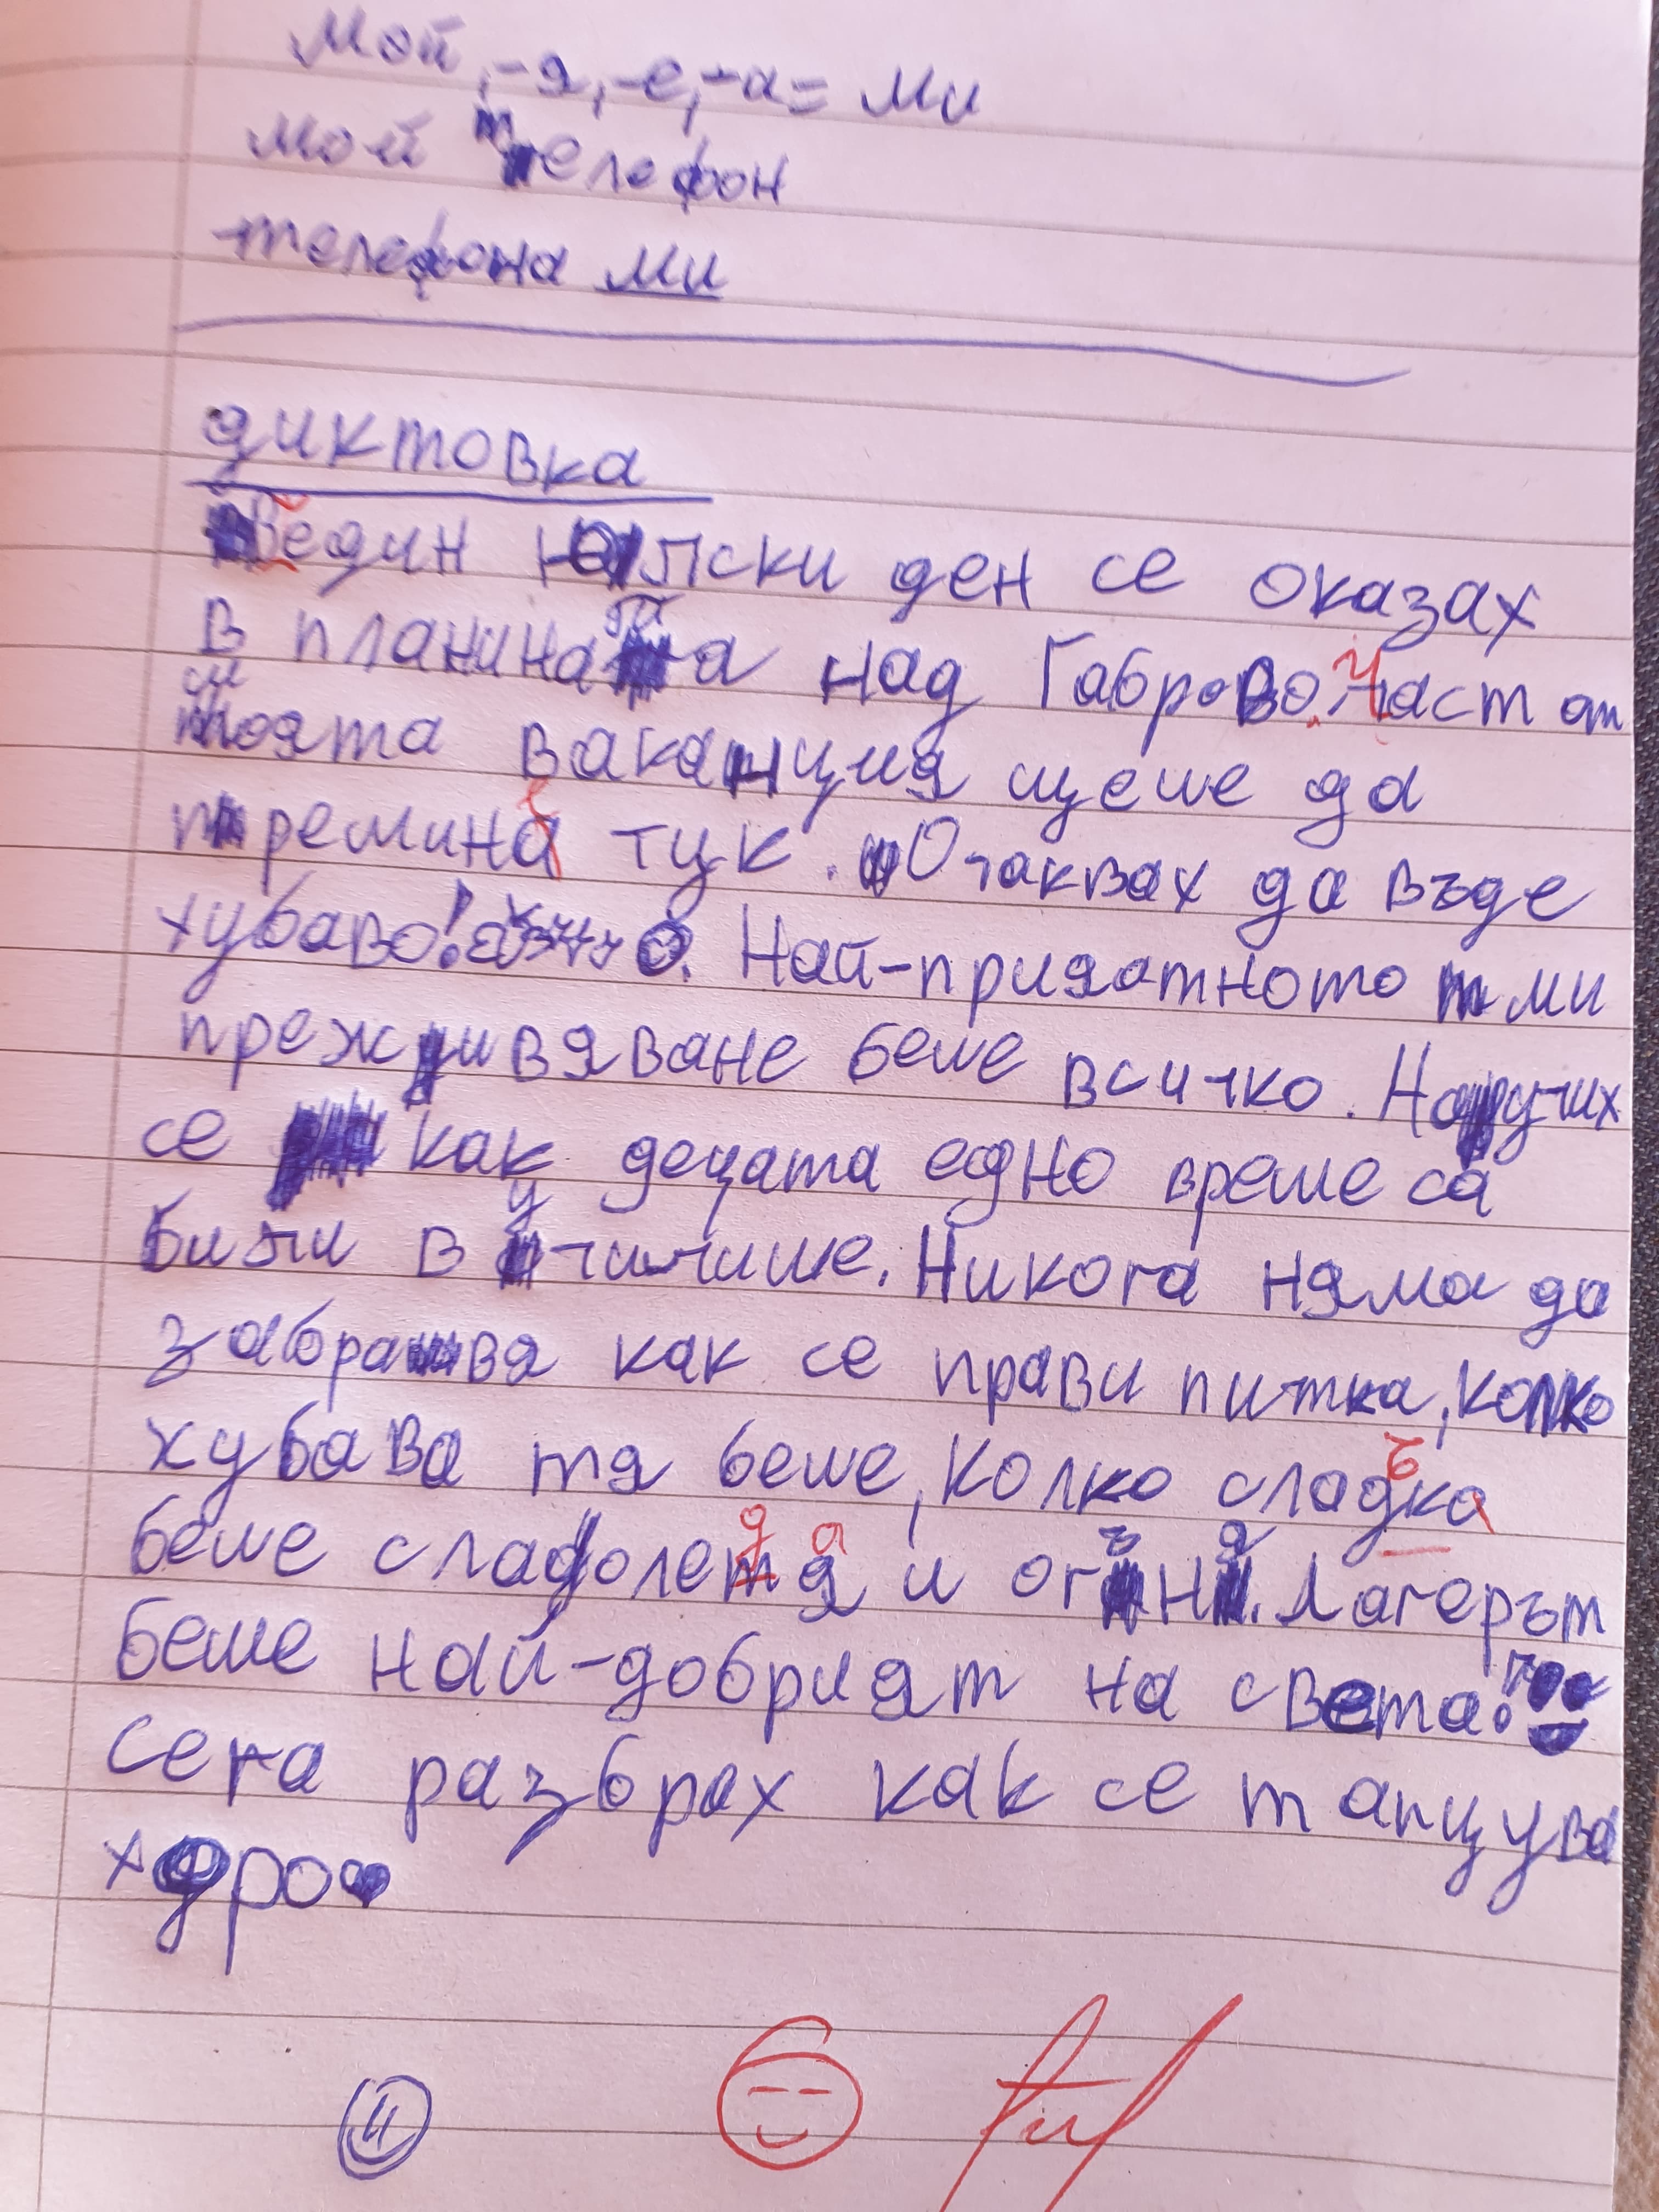 Мой, -я, -е, -а = ми
мой телефон
телефона ми
диктовка
В един юлски ден се оказах
в планината над Габрово. Част от
моята ваканция щеше да
премина тук. Очаквах да бъде
хубаво! Най-приятното ми
преживяване беше всичко. Научих
се как децата едно време са
били в училише. Никога няма да
забравя как се прави питка, колко
хубава тя беше, колко сладка
беше сладоледа и огъня. Лагерът
беше най-добрият на света!
сега разбрах как се танцува
хоро